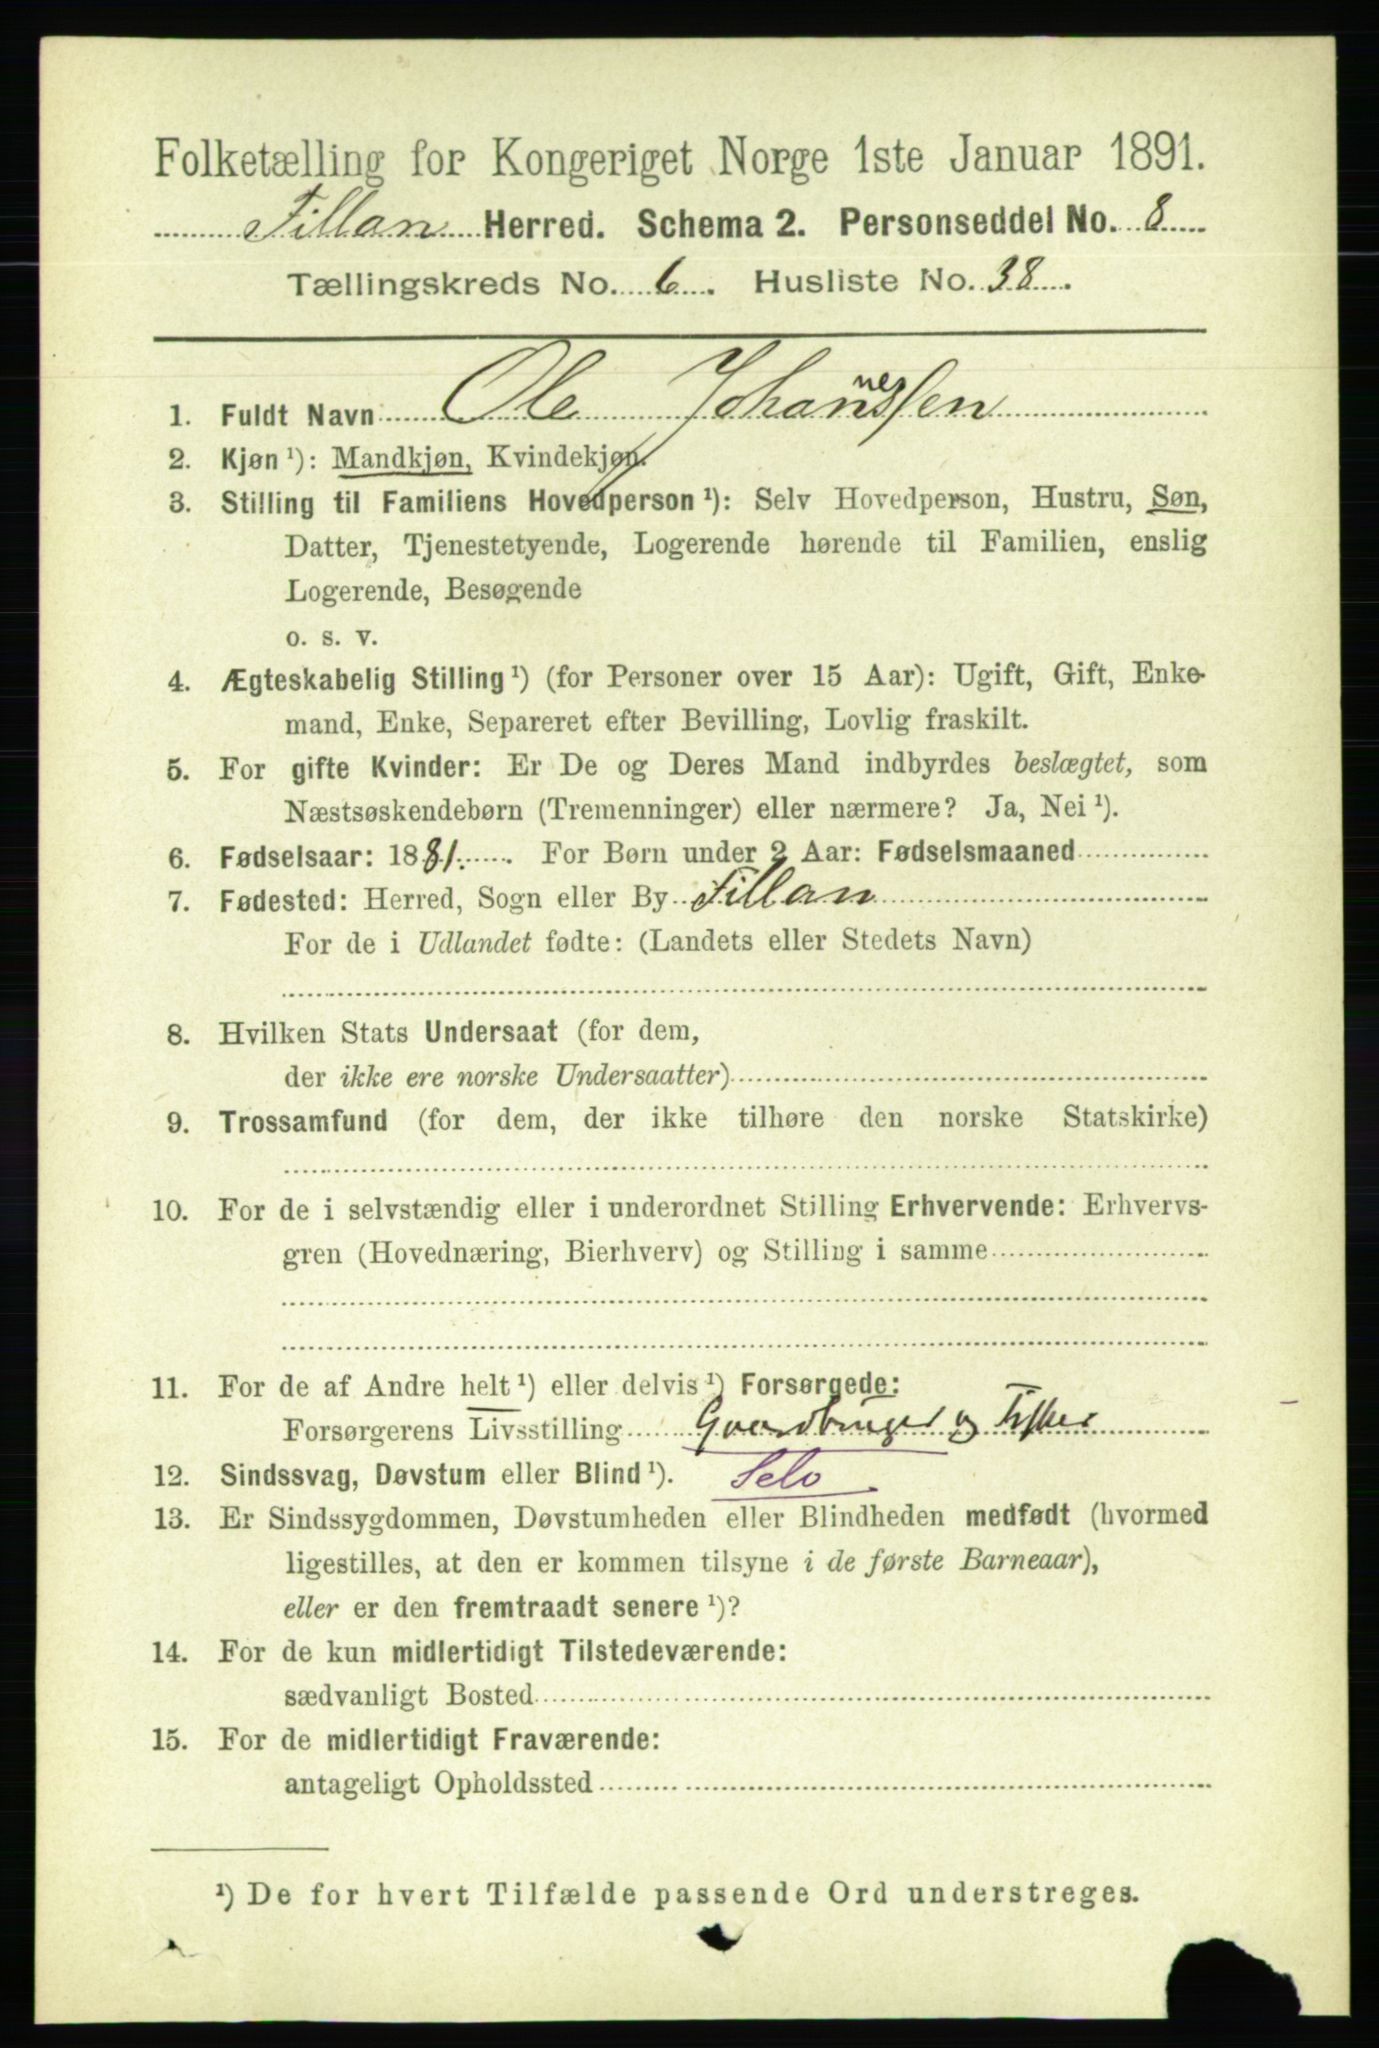 Folketælling for Kongeriget Norge 1ste Januar 1891.
Fillan Herred. Schema 2. Personseddel No. 8
Tællingskreds No. 6. Husliste No. 38.
1. Fuldt Navn Ole Johannesssen
2. Kjøn ¹): Mandkjøn, Kvindekjøn.
3. Stilling til Familiens Hovedperson ¹): Selv Hovedperson, Hustru, Søn,
Datter, Tjenestetyende, Logerende hørende til Familien, enslig
Logerende, Besøgende
o. s. v.
4. Ægteskabelig Stilling ¹) (for Personer over 15 Aar): Ugift, Gift, Enke-
mand, Enke, Separeret efter Bevilling, Lovlig fraskilt.
5. For gifte Kvinder: Er De og Deres Mand indbyrdes beslægtet, som
Næstsøskendebørn (Tremenninger) eller nærmere? Ja, Nei ¹).
6. Fødselsaar: 1881. For Børn under 2 Aar: Fødselsmaaned
7. Fødested: Herred, Sogn eller By Fillan
For de i Udlandet fødte: (Landets eller Stedets Navn)
8. Hvilken Stats Undersaat (for dem,
der ikke ere norske Undersaatter)
9. Trossamfund (for dem, der ikke tilhøre den norske Statskirke)
10. For de i selvstændig eller i underordnet Stilling Erhvervende: Erhvervs-
gren (Hovednæring, Bierhverv) og Stilling i samme
11. For de af Andre helt ¹) eller delvis ¹) Forsørgede:
Forsørgerens Livsstilling Gaardbruger og Fisker
12. Sindssvag, Døvstum eller Blind ¹). Selv
13. Er Sindssygdommen, Døvstumheden eller Blindheden medfødt (hvormed
ligestilles, at den er kommen tilsyne i de første Barneaar),
eller er den fremtraadt senere ¹)?
14. For de kun midlertidigt Tilstedeværende:
sædvanligt Bosted
15. For de midlertidigt Fraværende:
antageligt Opholdssted
¹) De for hvert Tilfælde passende Ord understreges.